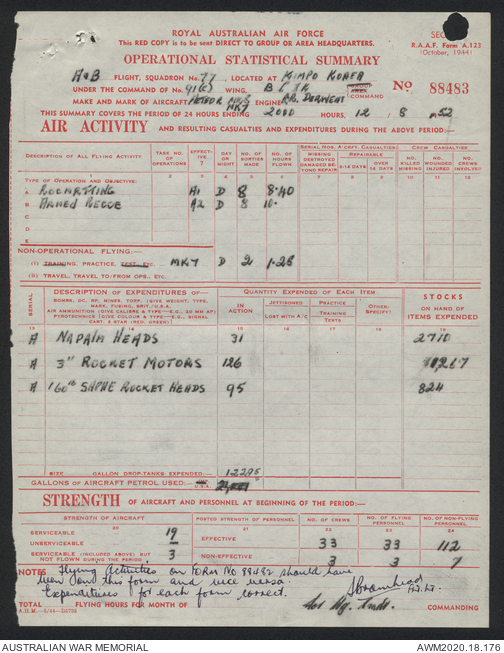 ROYAL AUSTRALIAN AIR FORCE
This RED COPY is to be sent DIRECT TO GROUP OR AREA HEADQUARTERS.
R.A.A.F. Form A.123
(October, 1944)
OPERATIONAL STATISTICAL SUMMARY
A & B FLIGHT, SQUADRON No. 77, LOCATED AT KIMPO KOREA
UNDER THE COMMAND OF No. 91(C) WING, COMMAND No 88483
MAKE AND MARK OF AIRCRAFT METEOR MK8 MK7 ENGINE R.R. DERWENT
THIS SUMMARY COVERS THE PERIOD OF 24 HOURS ENDING 2000 HOURS, 12 / 8 / 52
AIR ACTIVITY AND RESULTING CASUALTIES AND EXPENDITURES DURING THE ABOVE PERIOD:—
DESCRIPTION OF ALL FLYING ACTIVITY
TASK NO. OF OPERATIONS
EFFECTIVE ?
DAY OR NIGHT
NO. OF SORTIES MADE
NO. OF HOURS FLOWN
SERIAL NOS. A'CRFT. CASUALTIES
MISSING DESTROYED DAMAGED BEYOND REPAIR
REPAIRABLE
OVER 14 DAYS
CREW CASUALTIES
NO. KILLED MISSING
NO. WOUNDED INJURED
NO. CREWS INVOLVED
TYPE OF OPERATION AND OBJECTIVE:
A ROCKETTING A1 D 8 8·40
B ARMED RECCE A2 D 8 10·
C
D
E
NON-OPERATIONAL FLYING:—
(I) TRAINING, PRACTICE, TEST, ETC. MK7 D 2 1·25
(II) TRAVEL, TRAVEL TO/FROM OPS., ETC.
SERIAL
DESCRIPTION OF EXPENDITURES OF—
BOMBS, DC, RP, MINES, TORP. (GIVE WEIGHT, TYPE, MARK, FUSING, BRIT./U.S.A.
AIR AMMUNITION (GIVE CALIBRE & TYPE—E.G., 20 MM AP)
PYROTECHNICS (GIVE COLOUR & TYPE—E.G., SIGNAL CART. 2 STAR (RED, GREEN)
QUANTITY EXPENDED OF EACH ITEM
IN ACTION
JETTISONED
LOST WITH A/C
PRACTICE
TRAINING
TESTS
OTHER: SPECIFY:
STOCKS
ON HAND OF ITEMS EXPENDED
A NAPALM HEADS 31 2710
A 3" ROCKET MOTORS 126
A 60lb SAPHE ROCKET HEADS 95 824
SIZE GALLON DROP-TANKS EXPENDED:—
GALLONS OF AIRCRAFT PETROL USED:—
STRENGTH OF AIRCRAFT AND PERSONNEL AT BEGINNING OF THE PERIOD:—
STRENGTH OF AIRCRAFT
POSTED STRENGTH OF PERSONNEL
NO. OF CREWS
NO. OF FLYING PERSONNEL
NO. OF NON-FLYING PERSONNEL
SERVICEABLE 19
UNSERVICEABLE —
SERVICEABLE (INCLUDED ABOVE) BUT NOT FLOWN DURING THE PERIOD 3
EFFECTIVE 33 33 112
NON-EFFECTIVE 3 3 7
NOTES Flying Activities on FORM No 88482 should have
been on this form and vice versa.
Expenditures for each form correct.
TOTAL FLYING HOURS FOR MONTH OF
for Wg. Cmdr. COMMANDING
AUSTRALIAN WAR MEMORIAL
AWM2020.18.176